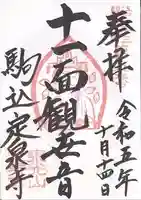 奉拝
令和五年
十月十四日
十一面観世音
駒込定泉寺